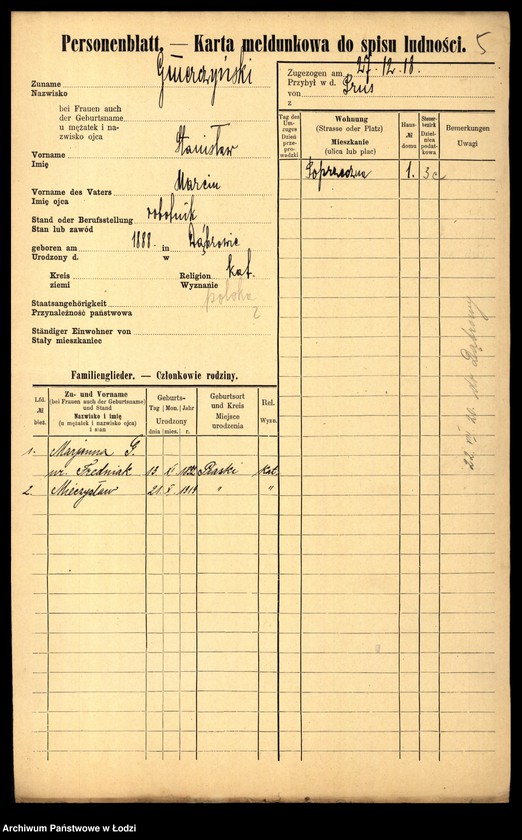 Personenblatt. — Karta meldunkowa do spisu ludności. 5
Zuname
Nazwisko
bei Frauen auch
der Geburtsname
u mężatek i na-
zwisko ojca
Stanisław
Vorname
Imię
Marcin
Vorname des Vaters
Imię ojca
Stand oder Berufsstellung robotnik
Stan lub zawód
geboren am 1888. in Dąbrowie
Urodzony d. w
Kreis Religion kat.
ziemi Wyznanie
polska
?
Staatsangehörigkeit
Przynależność państwowa
Ständiger Einwohner von
Stały mieszkaniec
Familienglieder. — Członkowie rodziny.
Lfd.
№
bież.
Zu- und Vorname
(bei Frauen auch der Geburtsname)
und Stand
Nazwisko i imię
(u mężatek i nazwisko ojca)
i stan
Geburts-
Tag Mon. Jahr
Urodzony
dnia mies. r.
Geburtsort
und Kreis
Miejsce
urodzenia
Rel.
Wyzn.
1. Marjanna G.
ur. Fredniak 19. XI. Piaski kat.
2. Mieczysław 21. X. 1918 " "
Zugezogen am 27.12.18.
Przybył w d. Prus
von
z
Tag des
Um-
zuges
Dzień
prze-
prowadzki
Wohnung
(Strasse oder Platz)
Mieszkanie
(ulica lub plac)
Haus-
№
domu
Steuer-
bezirk
Dziel-
nica
podat-
kowa
Bemerkungen
Uwagi
Poprzeczna 1. 3c
22. VII 26. do Dąbrowy
Archiwum Państwowe w Łodzi